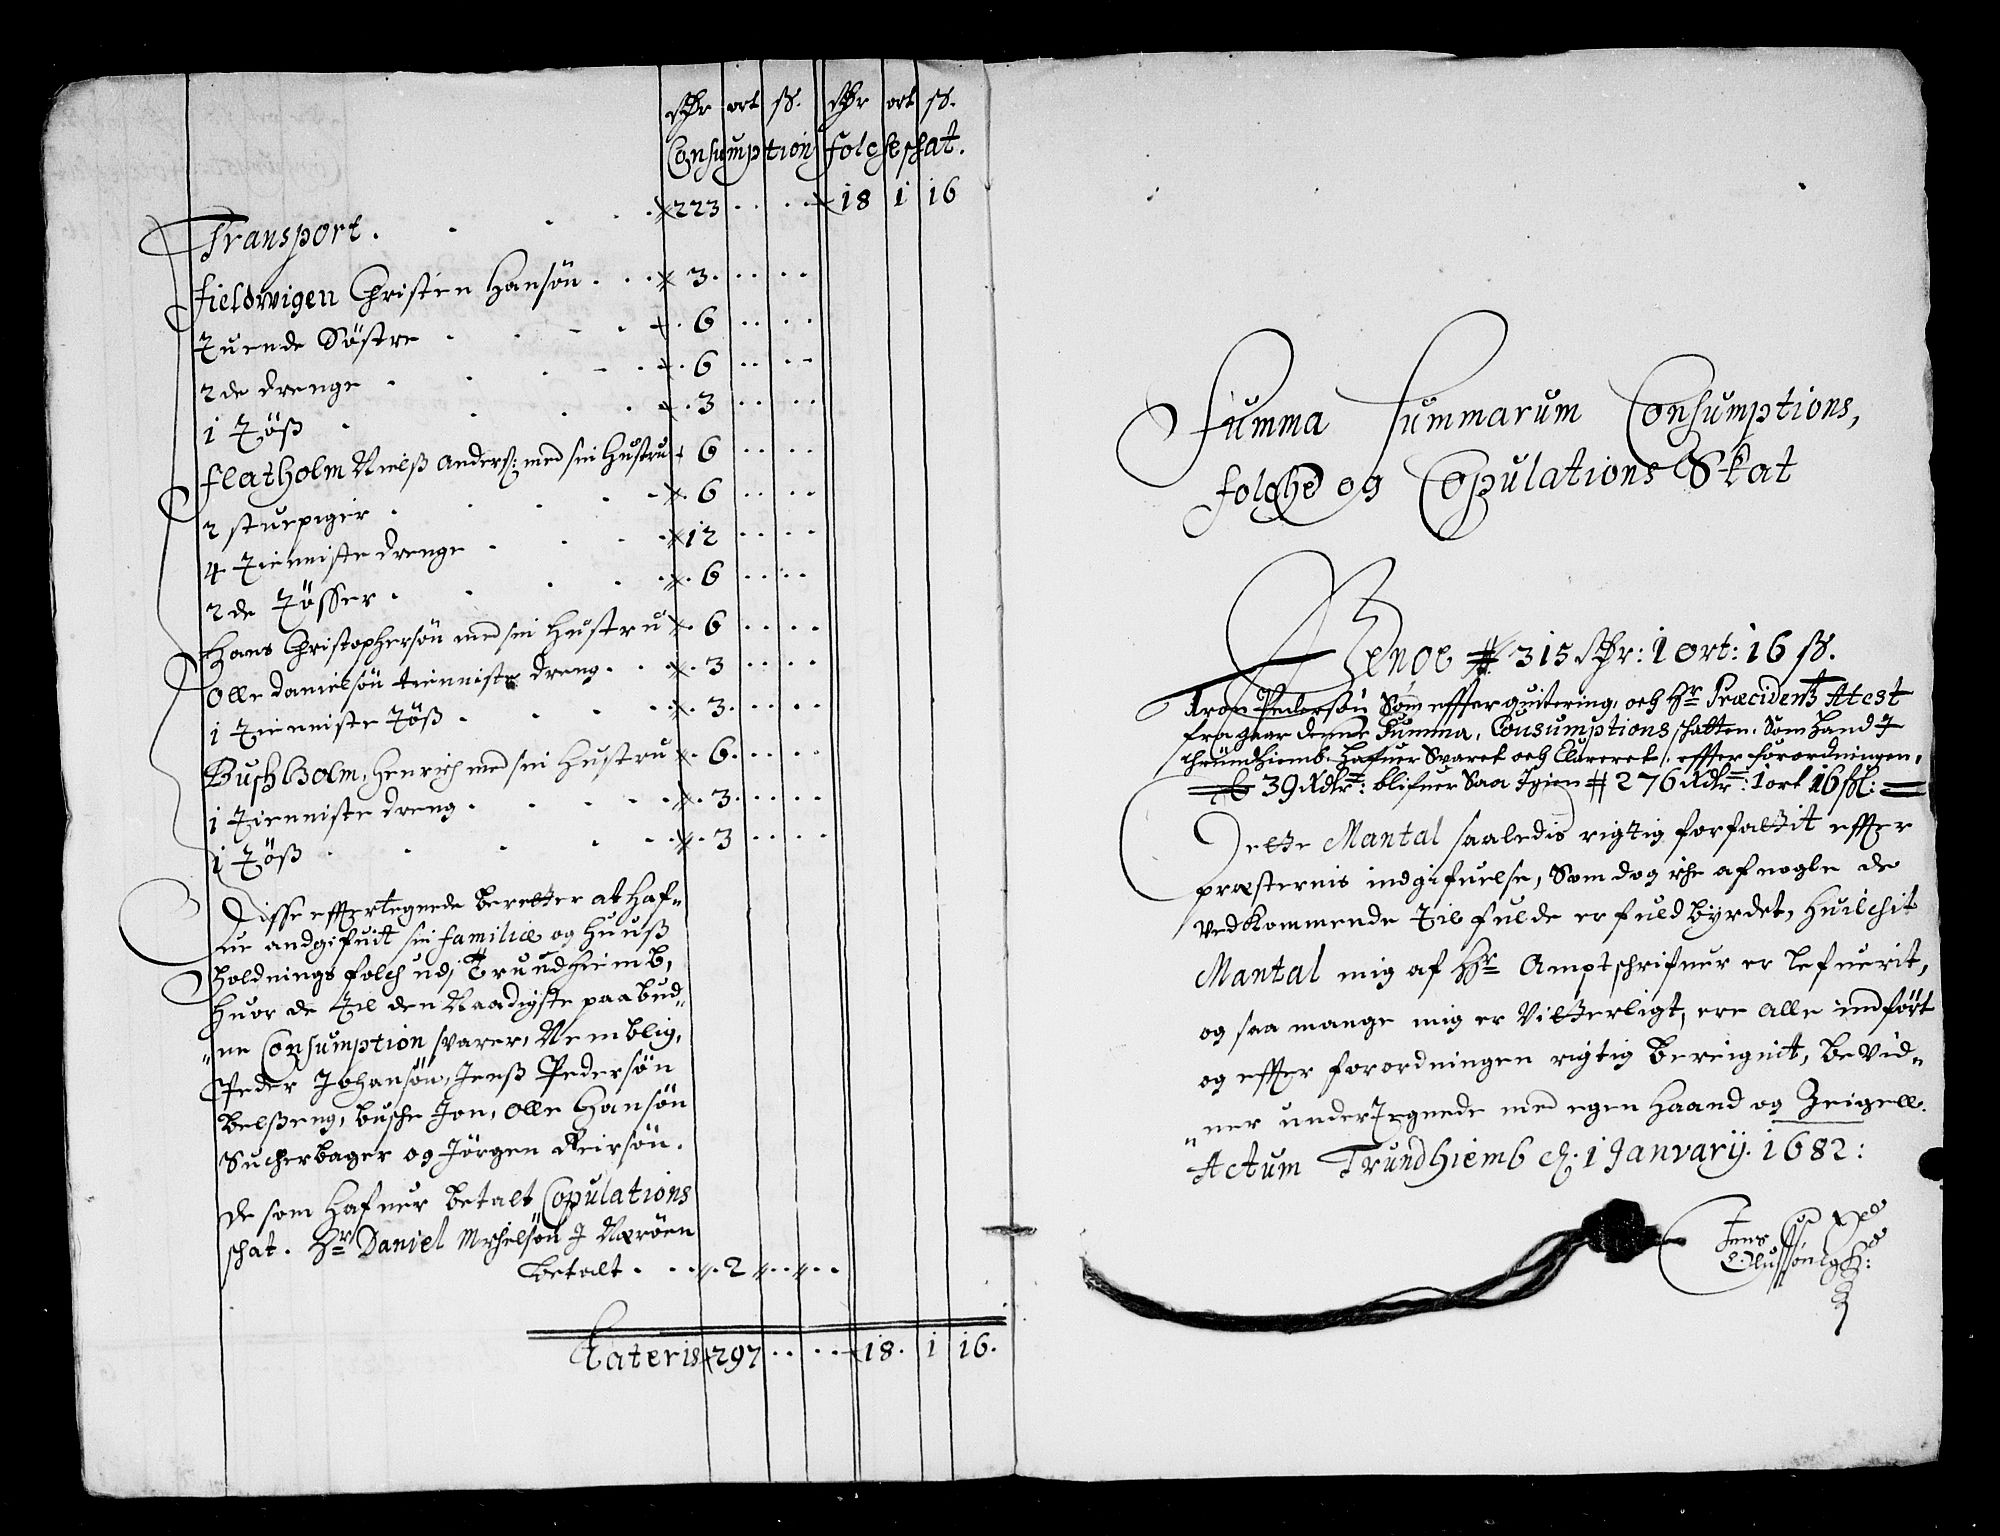 Rdr ort ß. Rdr ort ß.
Consumption folcheschat.
Transport . . . . 223 . . . . 18 1 16
fieldwigen Christen Hansön . . . 3 . . . .
Tuende Söstre . . . . 6 . . . .
2 de drenge . . . . 6 . . . .
1 Töß . . . . 3 . . . .
flatholm Nielß Anderß: med sin Hustru 6 . . . .
2 stuepiger . . . . 6 . . . .
4 Tienniste drenge . . . . 12 . . . .
2 de Tösser . . . . 6 . . . .
Hans Christophersön med sin Hustru 6 . . . .
Olle Danielsön tienniste dreng . . . 3 . . . .
1 Tienniste Töß . . . . 3 . . . .
Buschholm, Henrich med sin Hustru 6 . . . .
1 Tienniste dreng . . . . 3 . . . .
1 Töß . . . . 3 . . . .
Disse efftertegnede beretter at haf„
ue andgifuit sin familie og Huuß
holdnings folch udi Trundhiemb,
Huor de Til den Naadigste paabud„
„ne Consumption svarer, Nemblig,
Peder Johansön, Jenß Pedersön
Belßeng, busche Jon, Olle Hansön
Sucherbager og Jörgen Reirsön.
de som hafuer betalt Copulations
schat. Hr Daniel Michelsön J Næröen
betalt . . . 2 . . . .
Lateris 297 . . . . 18. 1 16.
Summa Summarum Consumptions,
folche og Copulations Skat
Penge 315 Rdr: 1 ort: 16 ß.
Aron Pedersön Som effter quitering, och Hr Præcidentß Atest
fra gaar denne Summa, Consumptions schatten. Som hand J
thrundhiemb. hafuer Svaret och Clareret, effter forordningen,
39 Rdlr: blifuer Saa Igien 276 Rdlr: 1 ort 16 ßl:
Dette Mantal saaledis rigtig forfattit effter
præsternis indgifuelse, Som dog iche af nogle de
vedkommende Til fulde er fuldbyrdet, Huilchit
Mantal mig af Hr Amptschrifuer er lefuerit,
og saa mange mig er Vitterligt, ere alle indfört
og effter forordningen rigtig bereignit, beVid„
„ner underTegnede med egen Haand og Zeigell.
Actum Trundhiemb d. 1 Januarij. 1682:
Jens